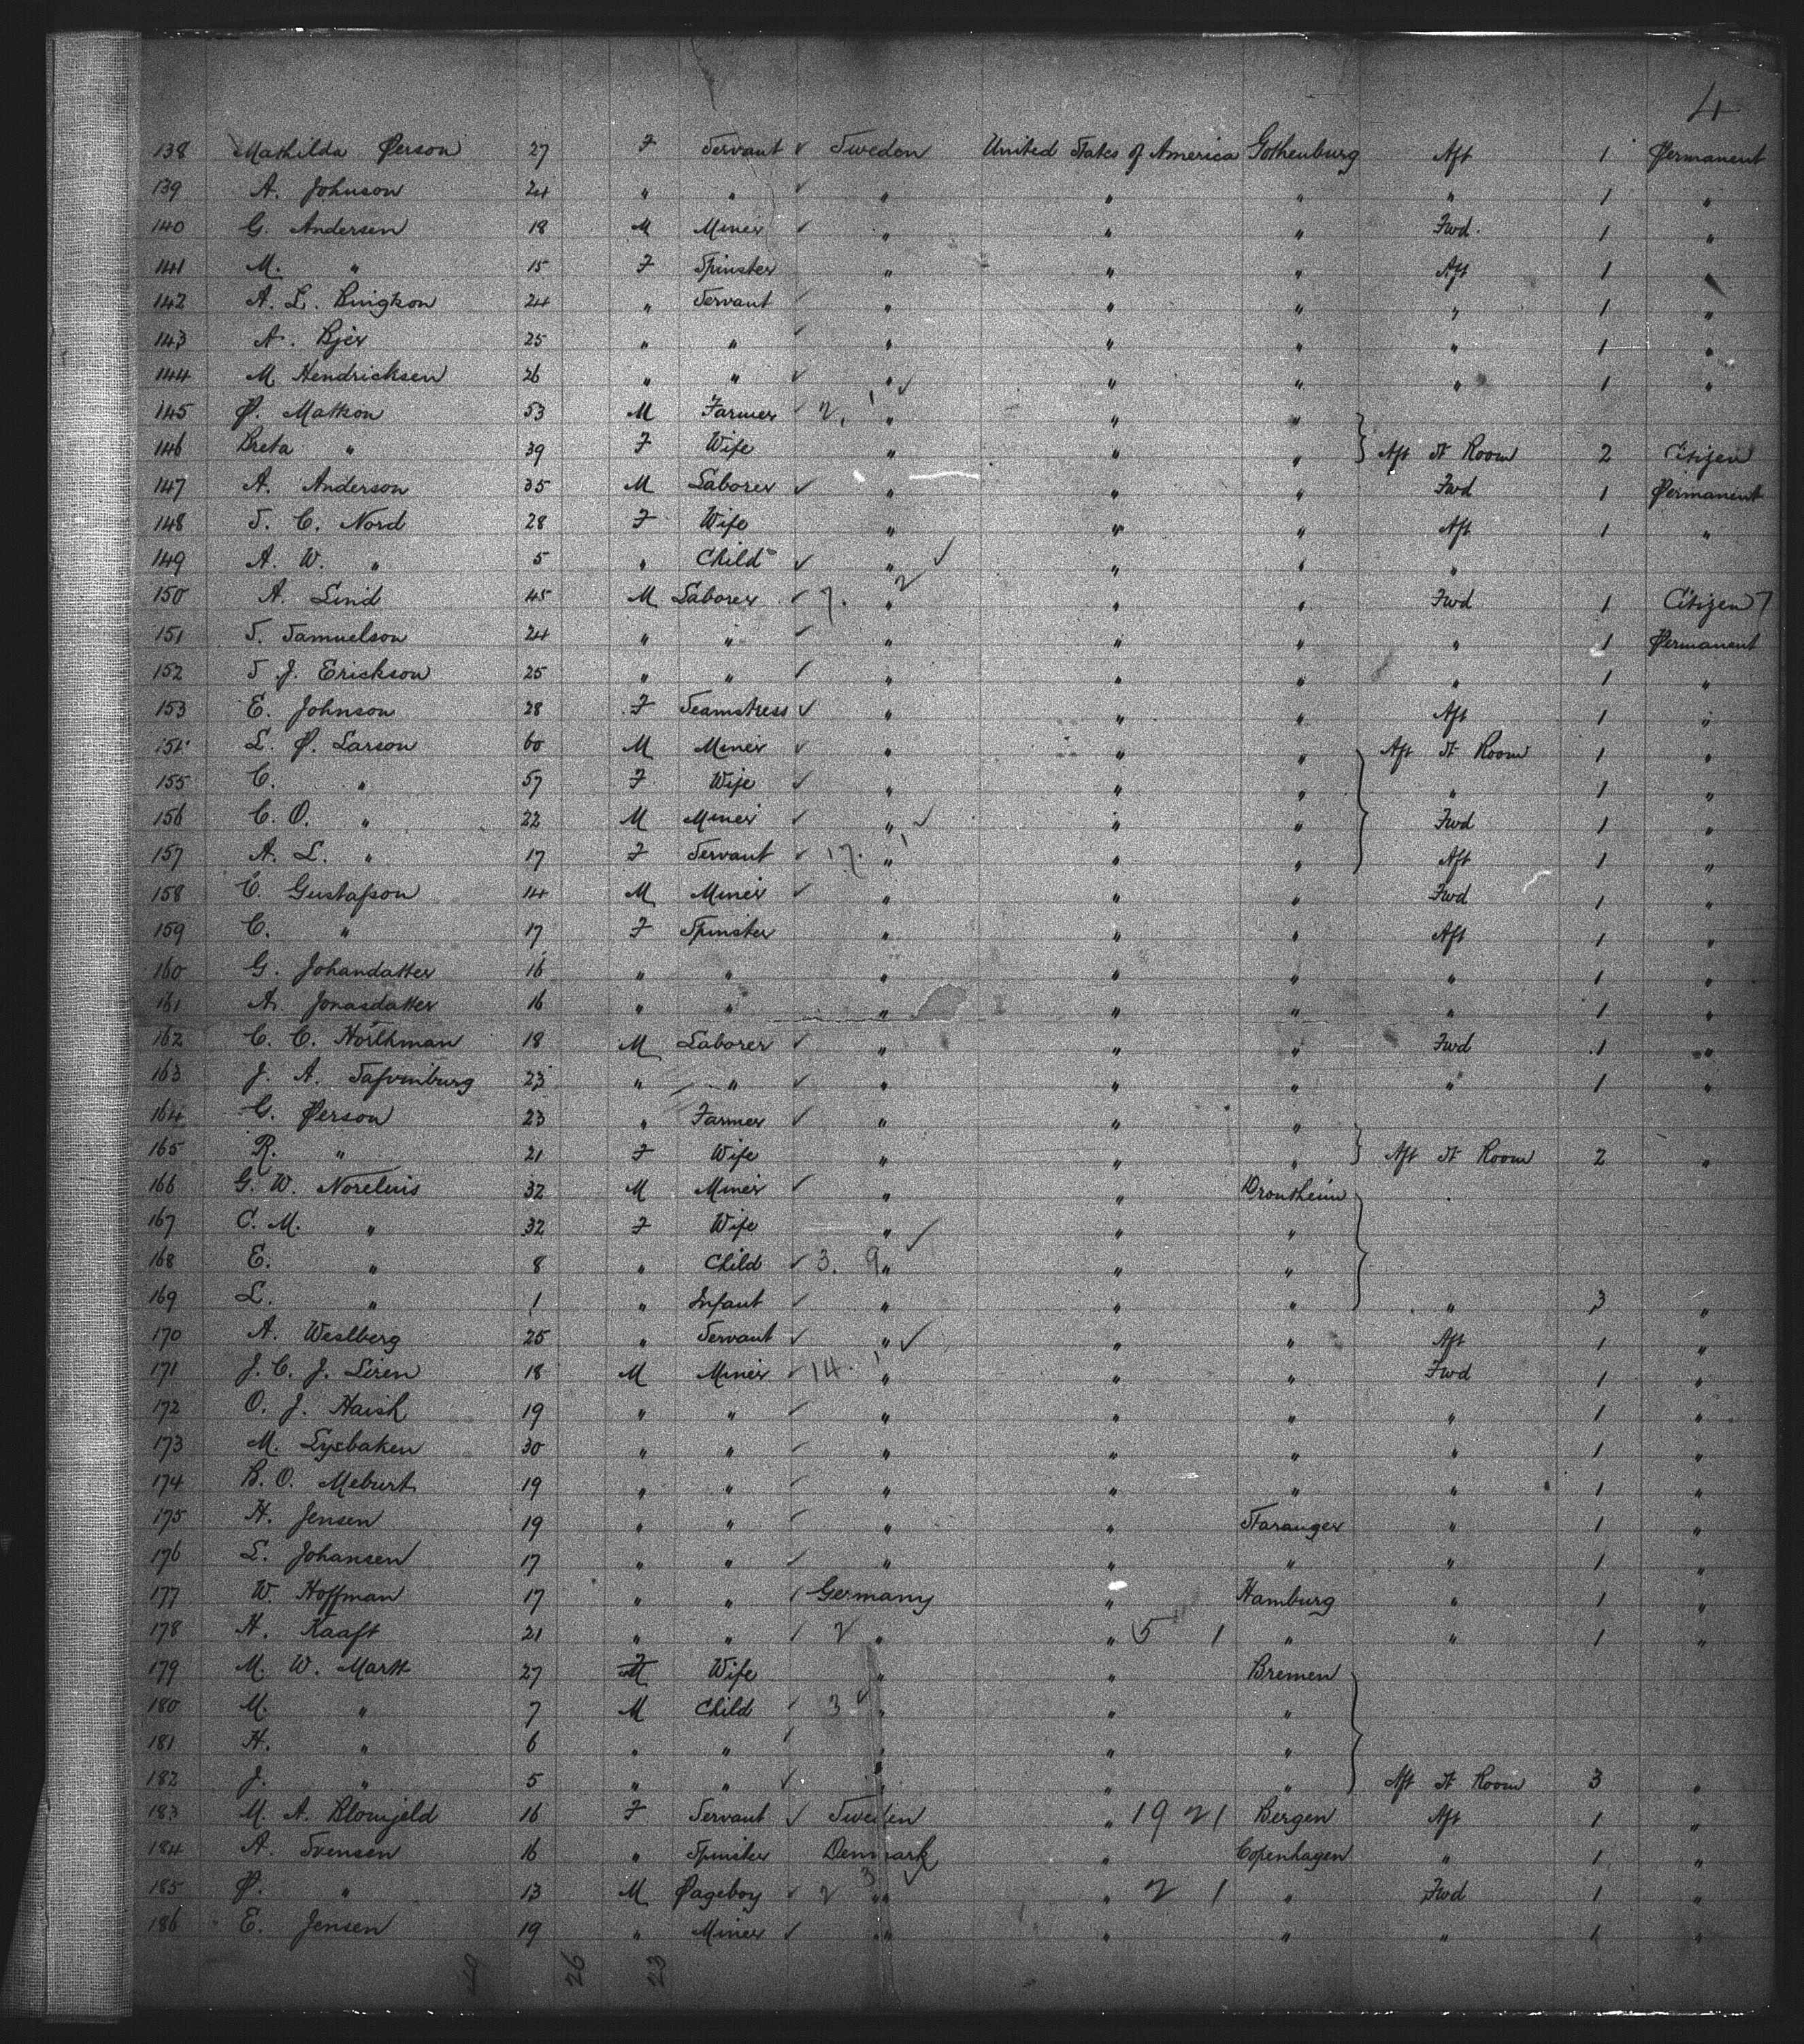 4
138 Mathilda Person 27 F Servant ✓ Sweden United States of America Gothenburg Aft 1 Permanent
139 A. Johnson 24 " " ✓ " " " " 1 "
140 G. Andersen 18 M Miner ✓ " " " Fwd. 1 "
141 M. " 15 F Spinster " " " Aft 1 "
142 A. L. Bingkon 24 " Servant ✓ " " " " 1 "
143 A. Bjer 25 " " ✓ " " " " 1 "
144 M Hendricksen 26 " " ✓ " 1 ✓ " " " 1 "
145 P. Matkon 53 M Farmer ✓ 2. " " "
146 Breta " 39 F Wife " " " Aft St Room 2 Citizen
147 A. Anderson 35 M Laborer ✓ " " " Fwd 1 Permanent
148 S. C. Nord 28 F Wife " " " Aft 1 "
149 A. W. " 5 " Child ✓ " ✓ " " "
150 A. Lind 45 M Laborer ✓ 7. " 2 " " Fwd 1 Citizen 7
151 S. Samuelson 24 " " ✓ " " " " 1 Permanent
152 S. J. Erickson 25 " " ✓ " " " " 1 "
153 E. Johnson 28 F Seamstress ✓ " " " Aft 1 "
154 L. P. Larson 60 M Miner ✓ " " " Aft St Room 1 "
155 C. " 57 F Wife ✓ " " " " 1 "
156 C. O. " 22 M Miner ✓ " ✓ " " Fwd 1 "
157 A. L. " 17 F Servant ✓ 17. " 1 " " Aft 1 "
158 C. Gustafson 14 M Miner ✓ " " " Fwd 1 "
159 C. " 17 F Spinster " " " Aft 1 "
160 G. Johandatter 16 " " " " " " 1 "
161 A. Jonasdatter 16 " " " " " " 1 "
162 C. C. Northman 18 M Laborer ✓ " " " Fwd 1 "
163 J. A. Safvinburg 23 " " ✓ " " " " 1 "
164 G. Person 23 " Farmer ✓ " " "
165 R. " 21 F Wife " " " Aft St Room 2 "
166 G. W. Noreluis 32 M Miner ✓ " " Drontheim
167 C. M. " 32 F Wife " ✓ " "
168 E. " 8 " Child ✓ 3. 9 " " "
169 L. " 1 " Infant ✓ " " " " 3 "
170 A. Weslberg 25 " Servant ✓ " ✓ " " Aft 1 "
171 J. C. J. Liren 18 M Miner ✓ 14. 1 " " " Fwd 1 "
172 O. J. Haish 19 " " ✓ " " " " 1 "
173 M. Lysbaken 30 " " ✓ " " " " 1 "
174 B. O. Meburt 19 " " ✓ " " " " 1 "
175 H. Jensen 19 " " ✓ " " Staranger " 1 "
176 L. Johansen 17 " " ✓ " " " " 1 "
177 W. Hoffman 17 " " ✓ Germany " Hamburg " 1 "
178 H. Kaaft 21 " " ✓ 2 " " 5 1 " " 1 "
179 M. W. Martt 27 F Wife " " Bremen
180 M. " 7 M Child ✓ 3 ✓ " " "
181 H. " 6 " " ✓ " " "
182 J. " 5 " " ✓ " " " Aft St Room 3 "
183 M. A. Blomjeld 16 F Servant ✓ Sweden " 19 2 1 Bergen Aft 1 "
184 A. Svensen 16 " Spinster Denmark " Copenhagen " 1 "
185 P. " 13 M Pageboy ✓ 2 3 ✓ " " 2 1 " Fwd 1 "
186 E. Jensen 19 " Miner ✓ " " " " 1 "
26 23